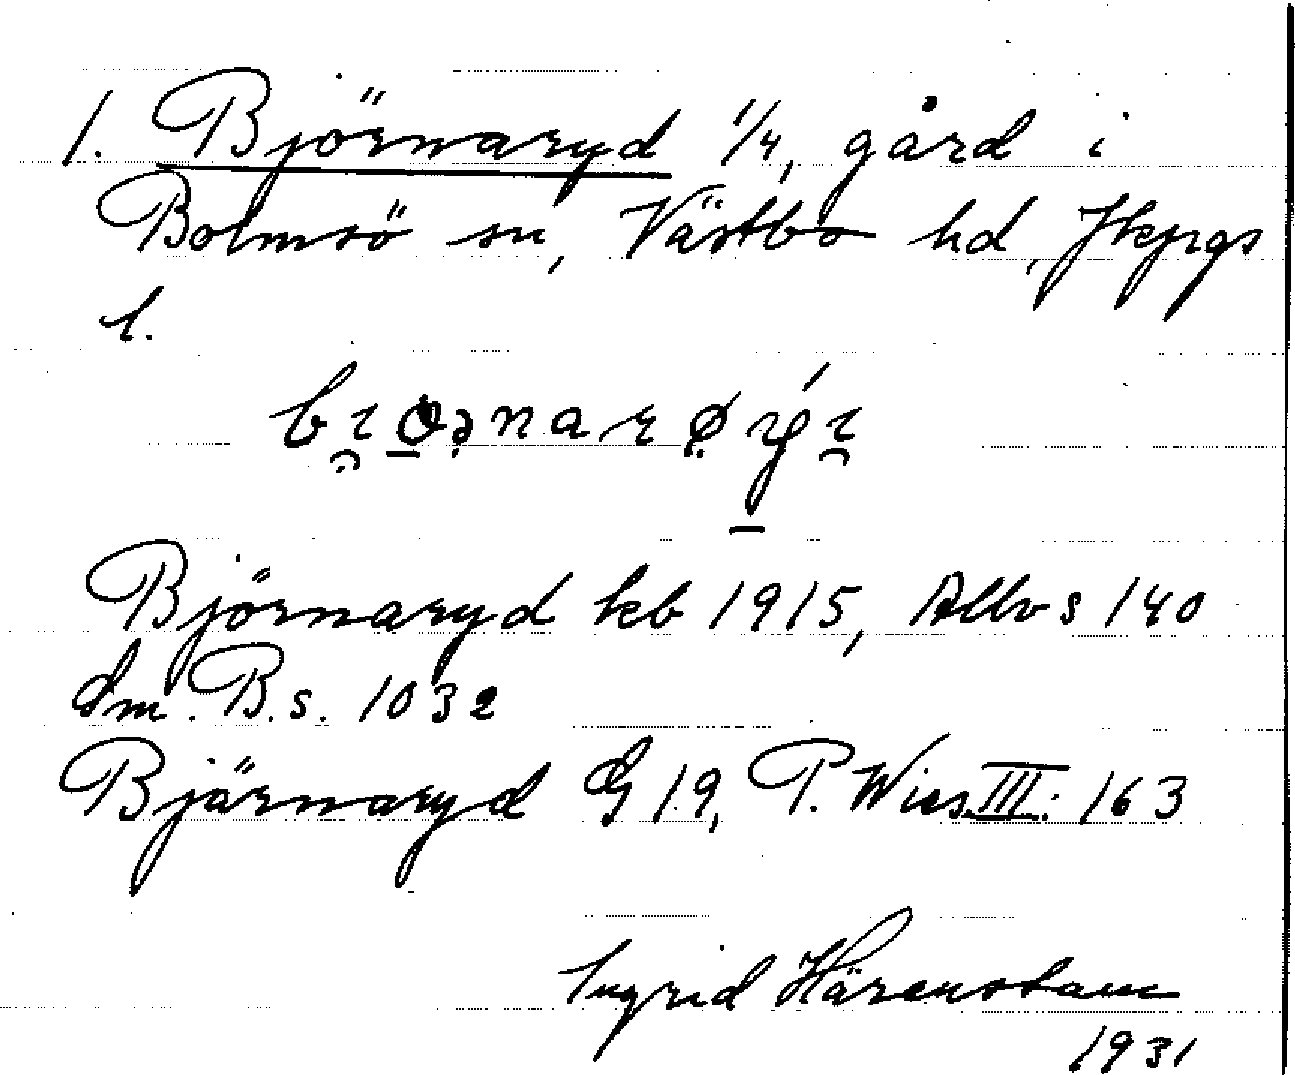 1. Björnaryd 1/4, gård i
Bolmsö sn, Västbo hd, Jkpgs
l.
Björnaryd kb 1915, Allvs 140
dm. B.s. 1032
Bjärnaryd G 19, P. Wies. III: 163
Ingrid Härenstam
1931